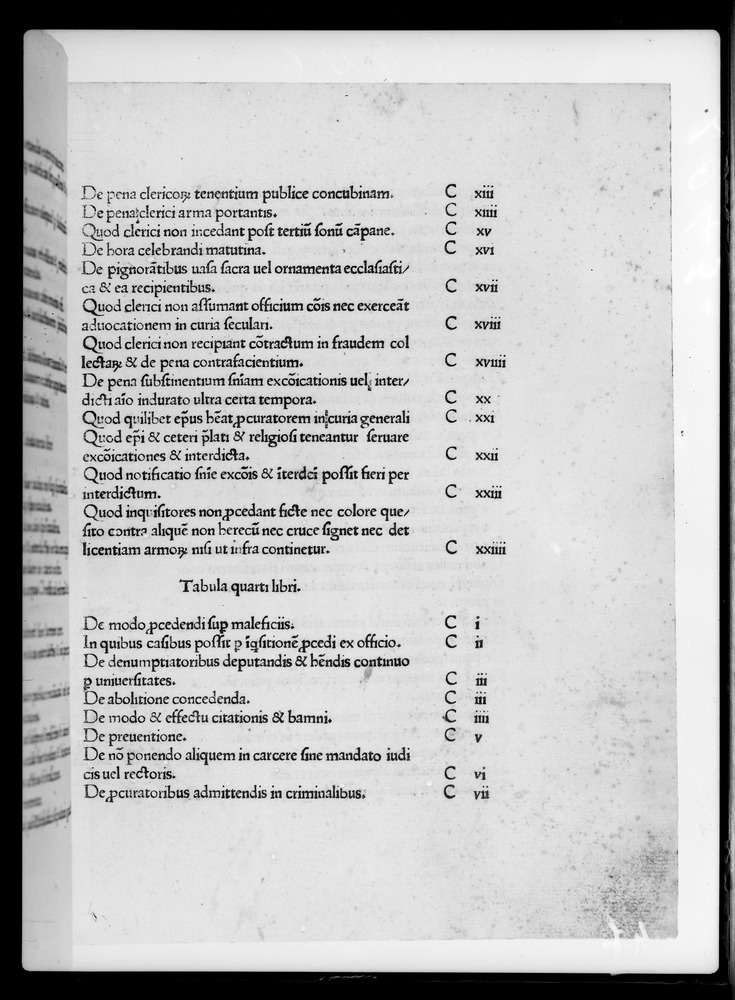 De pena clericoꝝ tenentium publice concubinam. C xiii
De pena clerici arma portantis. C xiiii
Quod clerici non incedant post tertiũ sonũ cãpane. C xv
De hora celebrandi matutina. C xvi
De pignorãtibus uasa sacra uel ornamenta ecclasiasti/
ca & ea recipientibus. C xvii
Quod clerici non assumant officium cõis nec exerceãt
aduocationem in curia seculari. C xviii
Quod clerici non recipiant cõtractum in fraudem col
lectaꝝ & de pena contrafacientium. C xviiii
De pena substinentium sñiam excõicationis uel inter/
dicti aĩo indurato ultra certa tempora. C xx
Quod quilibet ep̃us hẽat ꝓcuratorem in curia generali C xxi
Quod ep̃i & ceteri p̃lati & religiosi teneantur seruare
excõicationes & interdicta. C xxii
Quod notificatio sñie excõis & ĩterdci possit fieri per
interdictum. C xxiii
Quod inquisitores non ꝓcedant ficte nec colore que/
sito contra aliquẽ non hereticũ nec cruce signet nec det
licentiam armoꝝ nisi ut infra continetur. C xxiiii
Tabula quarti libri.
De modo ꝓcedendi suꝑ maleficiis. C i
In quibus casibus possit ꝑ ĩqsitionẽ ꝓcedi ex officio. C ii
De denumptiatoribus deputandis & hẽndis continuo
ꝑ uniuersitates. C iii
De abolitione concedenda. C iii
De modo & effectu citationis & bamni. C iiii
De preuentione. C v
De nõ ponendo aliquem in carcere sine mandato iudi
cis uel rectoris. C vi
De ꝓcuratoribus admittendis in criminalibus. C vii